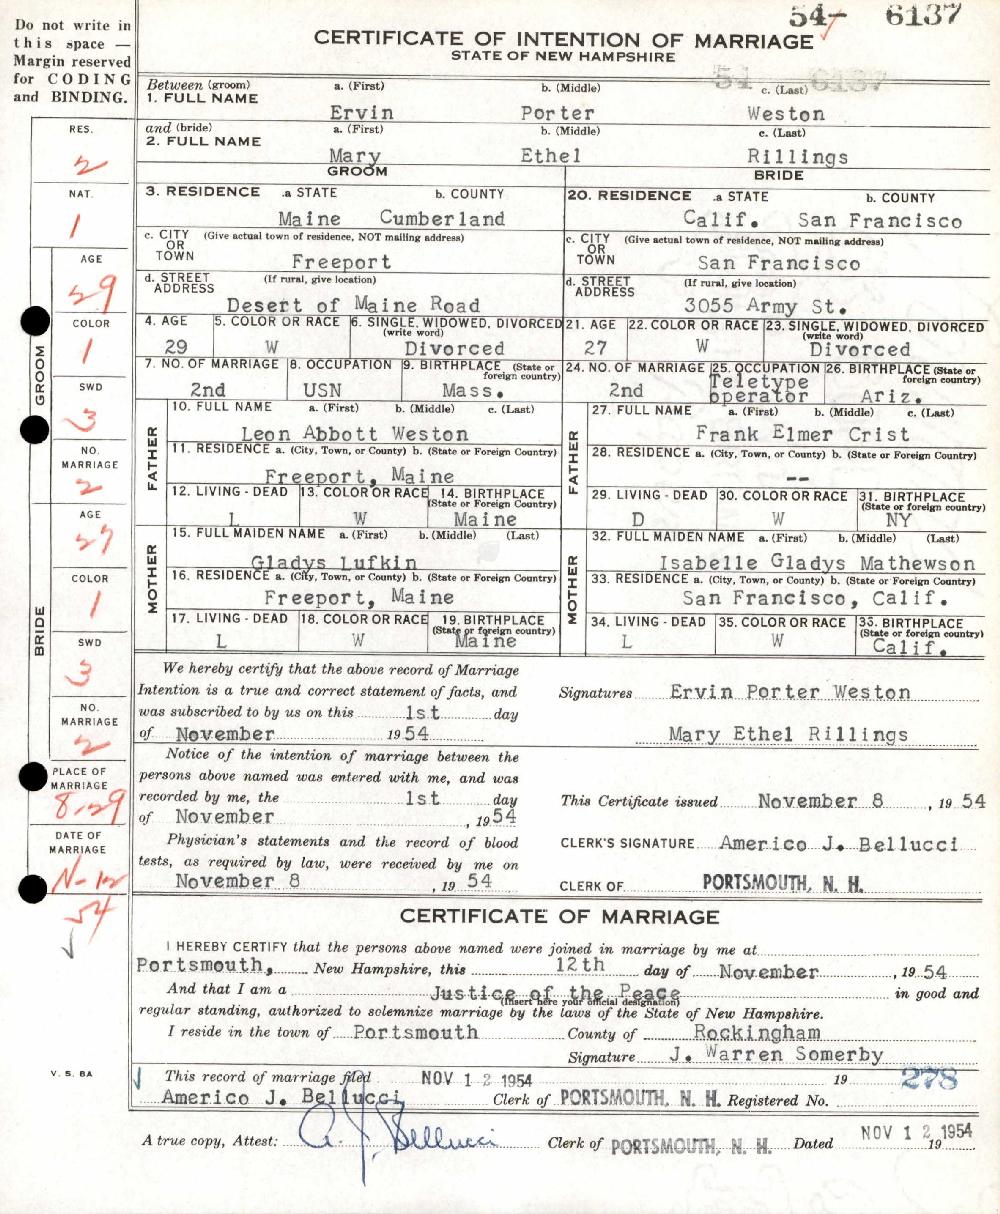 54- 6137
Do not write in
this space —
Margin reserved
for CODING
and BINDING.
CERTIFICATE OF INTENTION OF MARRIAGE
STATE OF NEW HAMPSHIRE
54 6137
Between (groom) a. (First) b. (Middle) c. (Last)
1. FULL NAME Ervin Porter Weston
and (bride) a. (First) b. (Middle) c. (Last)
2. FULL NAME Mary Ethel Rillings
GROOM BRIDE
3. RESIDENCE .a STATE b. COUNTY 20. RESIDENCE .a STATE b. COUNTY
Maine Cumberland Calif. San Francisco
c. CITY OR TOWN (Give actual town of residence, NOT mailing address) c. CITY OR TOWN (Give actual town of residence, NOT mailing address)
Freeport San Francisco
d. STREET ADDRESS (If rural, give location) d. STREET ADDRESS (If rural, give location)
Desert of Maine Road 3055 Army St.
4. AGE 5. COLOR OR RACE 6. SINGLE, WIDOWED, DIVORCED (write word) 21. AGE 22. COLOR OR RACE 23. SINGLE, WIDOWED, DIVORCED (write word)
29 W Divorced 27 W Divorced
7. NO. OF MARRIAGE 8. OCCUPATION 9. BIRTHPLACE (State or foreign country) 24. NO. OF MARRIAGE 25. OCCUPATION 26. BIRTHPLACE (State or foreign country)
2nd USN Mass. 2nd Teletype operator Ariz.
FATHER 10. FULL NAME a. (First) b. (Middle) c. (Last) FATHER 27. FULL NAME a. (First) b. (Middle) c. (Last)
Leon Abbott Weston Frank Elmer Crist
11. RESIDENCE a. (City, Town, or County) b. (State or Foreign Country) 28. RESIDENCE a. (City, Town, or County) b. (State or Foreign Country)
Freeport, Maine --
12. LIVING - DEAD 13. COLOR OR RACE 14. BIRTHPLACE (State or Foreign Country) 29. LIVING - DEAD 30. COLOR OR RACE 31. BIRTHPLACE (State or foreign country)
L W Maine D W NY
MOTHER 15. FULL MAIDEN NAME a. (First) b. (Middle) (Last) MOTHER 32. FULL MAIDEN NAME a. (First) b. (Middle) (Last)
Gladys Lufkin Isabelle Gladys Mathewson
16. RESIDENCE a. (City, Town, or County) b. (State or Foreign Country) 33. RESIDENCE a. (City, Town, or County) b. (State or Foreign Country)
Freeport, Maine San Francisco, Calif.
17. LIVING - DEAD 18. COLOR OR RACE 19. BIRTHPLACE (State or foreign country) 34. LIVING - DEAD 35. COLOR OR RACE 33. BIRTHPLACE (State or foreign country)
L W Maine L W Calif.
RES.
2
NAT.
1
GROOM
AGE
29
COLOR
1
SWD
3
NO. MARRIAGE
2
BRIDE
AGE
27
COLOR
1
SWD
3
NO. MARRIAGE
2
PLACE OF MARRIAGE
8-29
DATE OF MARRIAGE
N-12
54
We hereby certify that the above record of Marriage
Intention is a true and correct statement of facts, and
was subscribed to by us on this 1st day
of November 1954
Signatures Ervin Porter Weston
Mary Ethel Rillings
Notice of the intention of marriage between the
persons above named was entered with me, and was
recorded by me, the 1st day
of November , 1954
This Certificate issued November 8 , 19 54
Physician's statements and the record of blood
tests, as required by law, were received by me on
November 8 , 19 54
CLERK'S SIGNATURE Americo J. Bellucci
CLERK OF PORTSMOUTH, N. H.
CERTIFICATE OF MARRIAGE
I HEREBY CERTIFY that the persons above named were joined in marriage by me at
Portsmouth, New Hampshire, this 12th day of November , 19 54
And that I am a Justice of the Peace in good and
(Insert here your official designation)
regular standing, authorized to solemnize marriage by the laws of the State of New Hampshire.
I reside in the town of Portsmouth County of Rockingham
Signature J. Warren Somerby
V. S. 8A
This record of marriage filed NOV 12 1954 19
Americo J. Bellucci Clerk of PORTSMOUTH, N. H. Registered No. 278
A true copy, Attest: A. J. Bellucci Clerk of PORTSMOUTH, N. H. Dated NOV 12 1954 19